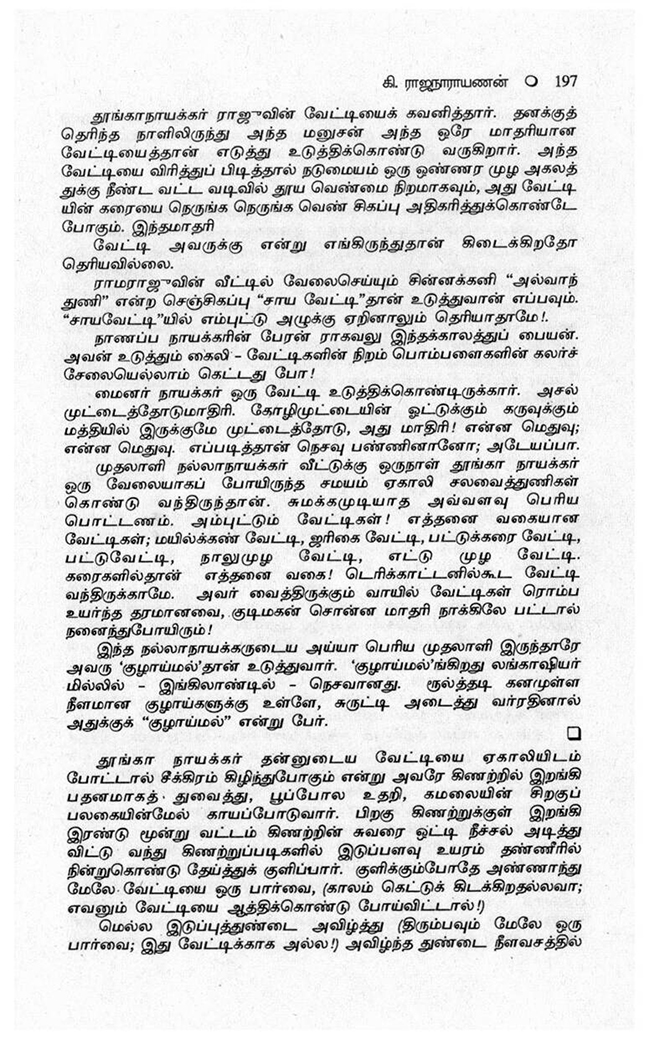 கி. ராஜநாராயணன் ❍ 197
தூங்காநாயக்கர் ராஜுவின் வேட்டியைக் கவனித்தார். தனக்குத்
தெரிந்த நாளிலிருந்து அந்த மனுசன் அந்த ஒரே மாதரியான
வேட்டியைத்தான் எடுத்து உடுத்திக்கொண்டு வருகிறார். அந்த
வேட்டியை விரித்துப் பிடித்தால் நடுமையம் ஒரு ஒண்ணர முழ அகலத்
துக்கு நீண்ட வட்ட வடிவில் தூய வெண்மை நிறமாகவும், அது வேட்டி
யின் கரையை நெருங்க நெருங்க வெண் சிகப்பு அதிகரித்துக்கொண்டே
போகும். இந்தமாதரி
வேட்டி அவருக்கு என்று எங்கிருந்துதான் கிடைக்கிறதோ
தெரியவில்லை.
ராமராஜுவின் வீட்டில் வேலைசெய்யும் சின்னக்கனி “அல்வாந்
துணி” என்ற செஞ்சிகப்பு “சாய வேட்டி”தான் உடுத்துவான் எப்பவும்.
“சாயவேட்டி”யில் எம்புட்டு அழுக்கு ஏறினாலும் தெரியாதாமே!.
நாணப்ப நாயக்கரின் பேரன் ராகவலு இந்தக்காலத்துப் பையன்.
அவன் உடுத்தும் கைலி – வேட்டிகளின் நிறம் பொம்பளைகளின் கலர்ச்
சேலையெல்லாம் கெட்டது போ!
மைனர் நாயக்கர் ஒரு வேட்டி உடுத்திக்கொண்டிருக்கார். அசல்
முட்டைத்தோடுமாதிரி. கோழிமுட்டையின் ஓட்டுக்கும் கருவுக்கும்
மத்தியில் இருக்குமே முட்டைத்தோடு, அது மாதிரி! என்ன மெதுவு;
என்ன மெதுவு. எப்படித்தான் நெசவு பண்ணினானோ; அடேயப்பா.
முதலாளி நல்லாநாயக்கர் வீட்டுக்கு ஒருநாள் தூங்கா நாயக்கர்
ஒரு வேலையாகப் போயிருந்த சமயம் ஏகாலி சலவைத்துணிகள்
கொண்டு வந்திருந்தான். சுமக்கமுடியாத அவ்வளவு பெரிய
பொட்டணம். அம்புட்டும் வேட்டிகள்! எத்தனை வகையான
வேட்டிகள்; மயில்க்கண் வேட்டி, ஜரிகை வேட்டி, பட்டுக்கரை வேட்டி,
பட்டுவேட்டி, நாலுமுழ வேட்டி, எட்டு முழ வேட்டி.
கரைகளில்தான் எத்தனை வகை! டெரிக்காட்டனில்கூட வேட்டி
வந்திருக்காமே. அவர் வைத்திருக்கும் வாயில் வேட்டிகள் ரொம்ப
உயர்ந்த தரமானவை, குடிமகன் சொன்ன மாதரி நாக்கிலே பட்டால்
நனைந்துபோயிரும்!
இந்த நல்லாநாயக்கருடைய அய்யா பெரிய முதலாளி இருந்தாரே
அவரு ‘குழாய்மல்’தான் உடுத்துவார். ‘குழாய்மல்’ங்கிறது லங்காஷியர்
மில்லில் – இங்கிலாண்டில் – நெசவானது. ரூல்த்தடி கனமுள்ள
நீளமான குழாய்களுக்கு உள்ளே, சுருட்டி அடைத்து வர்ரதினால்
அதுக்குக் “குழாய்மல்” என்று பேர்.
❏
தூங்கா நாயக்கர் தன்னுடைய வேட்டியை ஏகாலியிடம்
போட்டால் சீக்கிரம் கிழிந்துபோகும் என்று அவரே கிணற்றில் இறங்கி
பதனமாகத் துவைத்து, பூப்போல உதறி, கமலையின் சிறகுப்
பலகையின்மேல் காயப்போடுவார். பிறகு கிணற்றுக்குள் இறங்கி
இரண்டு மூன்று வட்டம் கிணற்றின் சுவரை ஒட்டி நீச்சல் அடித்து
விட்டு வந்து கிணற்றுப்படிகளில் இடுப்பளவு உயரம் தண்ணீரில்
நின்றுகொண்டு தேய்த்துக் குளிப்பார். குளிக்கும்போதே அண்ணாந்து
மேலே வேட்டியை ஒரு பார்வை, (காலம் கெட்டுக் கிடக்கிறதல்லவா;
எவனும் வேட்டியை ஆத்திக்கொண்டு போய்விட்டால்!)
மெல்ல இடுப்புத்துண்டை அவிழ்த்து (திரும்பவும் மேலே ஒரு
பார்வை; இது வேட்டிக்காக அல்ல!) அவிழ்ந்த துண்டை நீளவசத்தில்